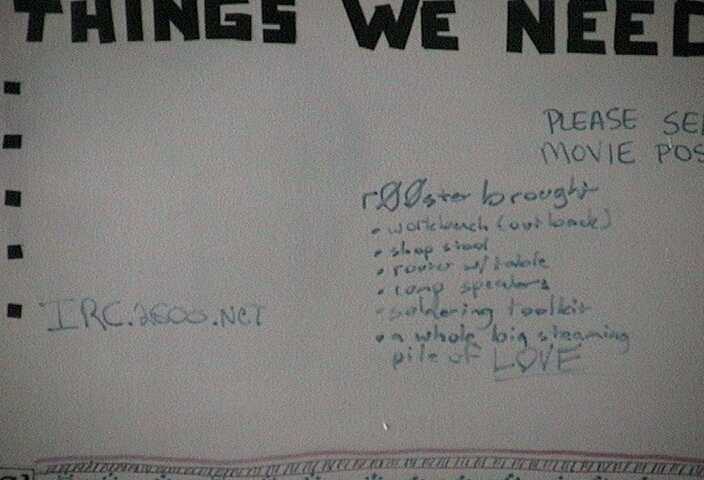 THINGS WE NEED
PLEASE SE
MOVIE POS
r00ster brought
• workbench (out back)
• shop stool
• router w/table
• comp speakers
• soldering toolkit
• a whole big steaming
pile of LOVE
IRC.2600.NET